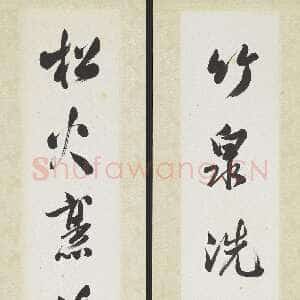 竹泉洗
松火煮
Shufawang.CN